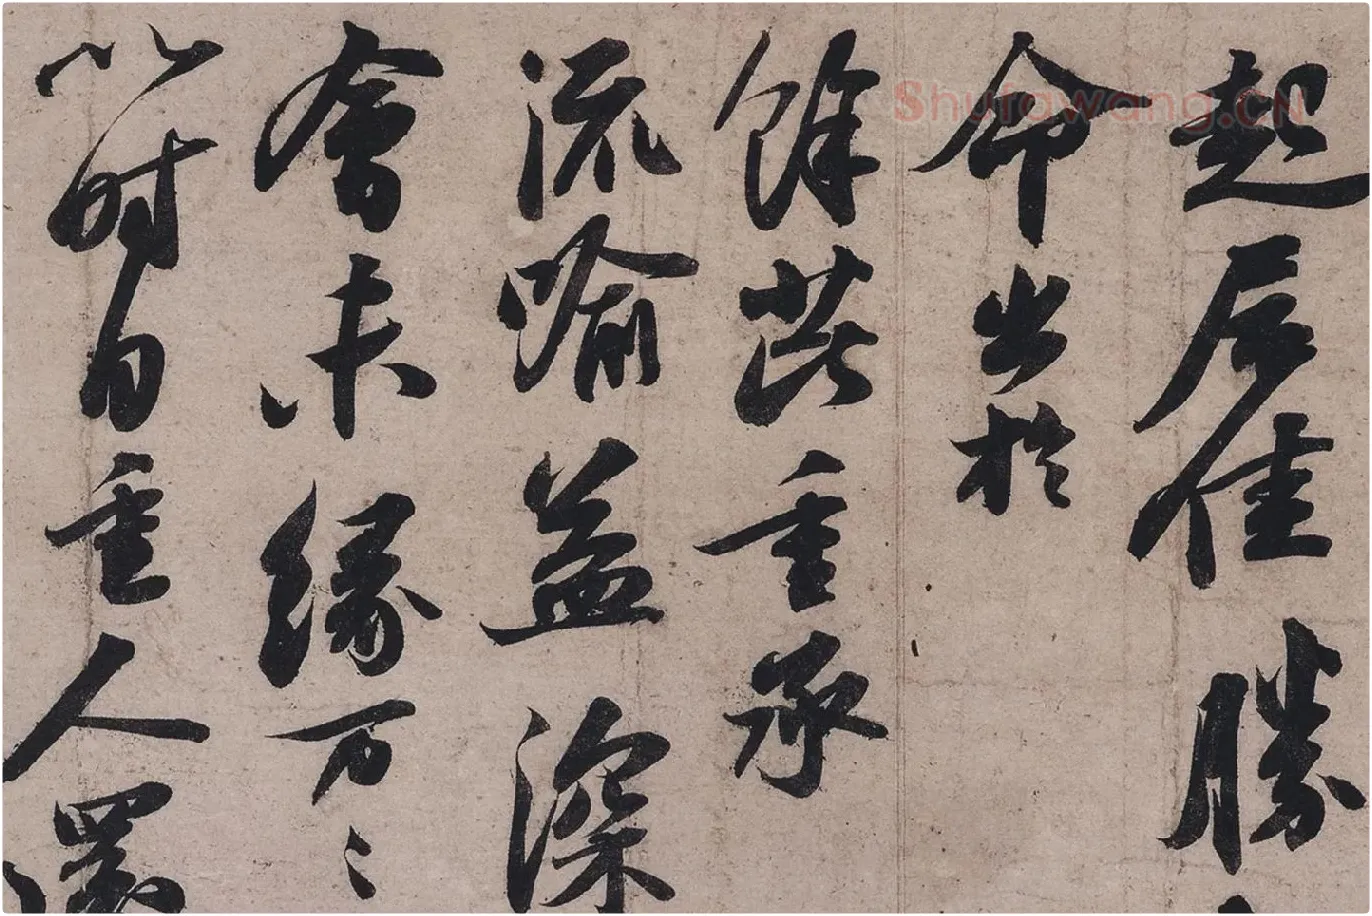 起居佳勝
命出於
餘芘重承
流喻益深
會未緣万〻
以時自重人還
Shufawang.CN